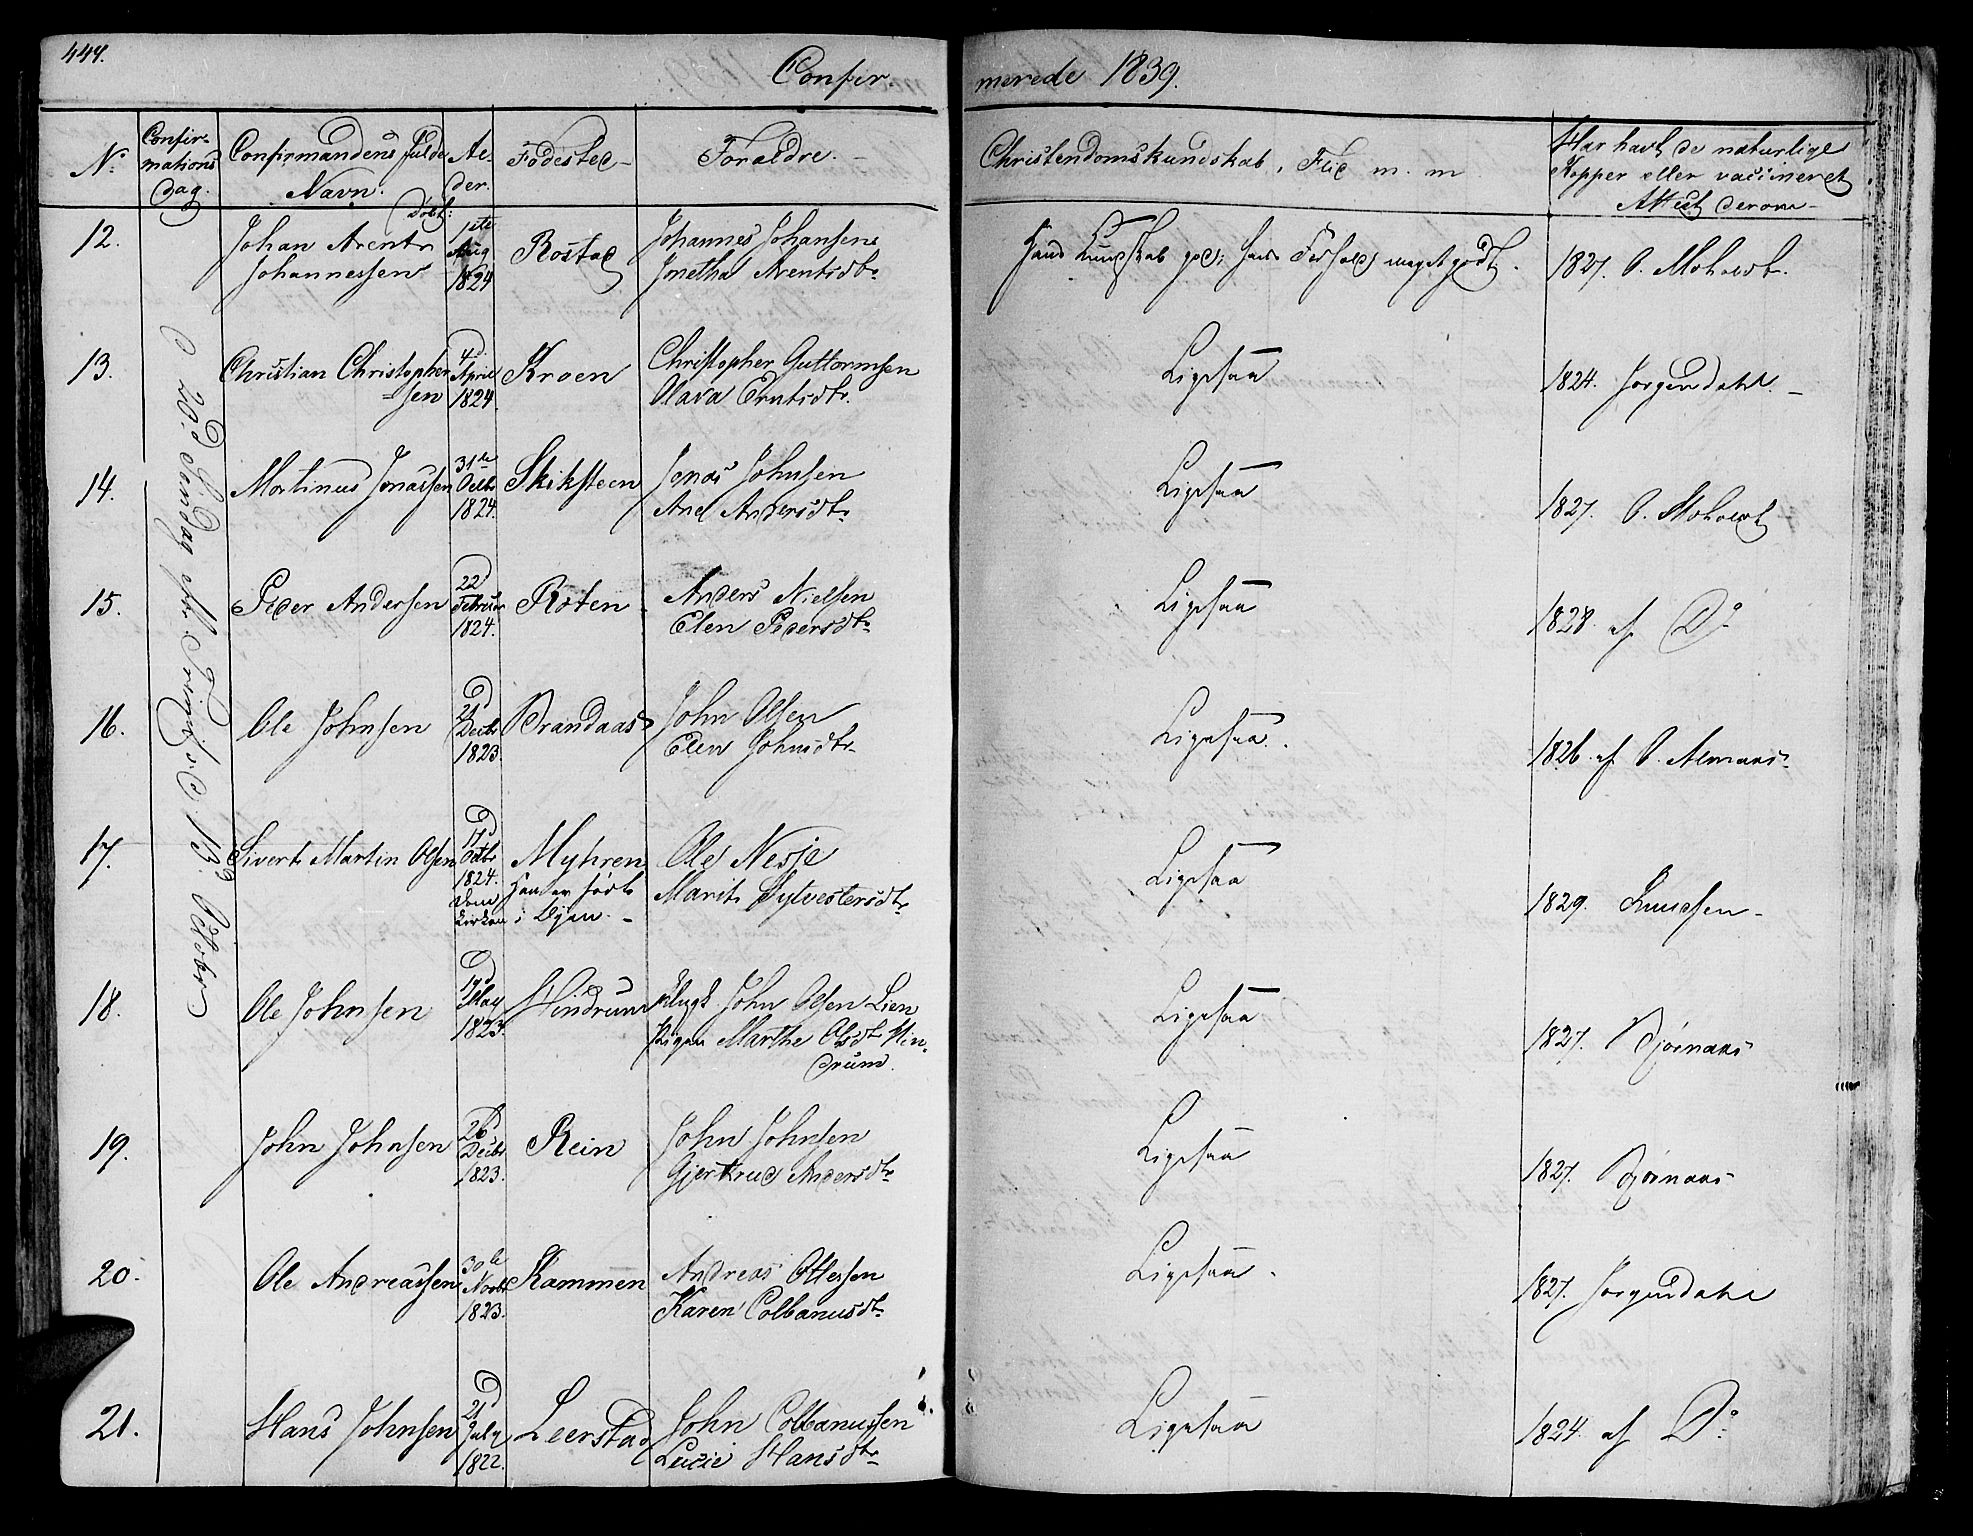 444.
Confir
merede 1839.
No
Confir-
mations
dag.
Confirmandens fulde
Navn.
Al-
der.
Fødested
Foraldre.
Christendomskundskab, Flid m. m
Har havt de naturlige
Kopper eller vaccineret
Attest derom
D. 20. Søndag efter Trinit. d. 13. Octobr
12.
Johan Arents
Johannessen
Døbt:
1ste
Aug
1824
Rostad
Johannes Johansen
Jonetha Arentsdtr
Hans Kundskab god; hans Forhold meget godt.
1827. O. Moholdt.
13.
Christian Christopher
sen
d 4
April
1824.
Kroen
Christopher Guttormsen
Olava Erntsdtr.
Ligesaa
1824. Jorgendahl.
14.
Martinus Jonassen
31te
Octbr
1824.
Skiksteen
Jonas Johnsen
Ane Andersdtr
Ligesaa
1827. O. Moholdt
15.
Peder Andersen
d 22
Februar
1824.
Roten
Anders Nielsen
Elen Pedersdtr
Ligesaa
1828 af Do
16.
Ole Johnsen
d 21
Decbr
1823.
Brandaas
John Olsen
Elen Johnsdtr.
Ligesaa.
1826. af O. Alemaas
17.
Sivert Martin Olsen
d 17
Octbr
1824.
Myhren
han er født
i Bynen.
Ole Nesje
Marit Sylvestersdtr
Ligesaa
1829. Knudsen
18.
Ole Johnsen
d 19
May
1823.
Hindrum
Ungk. John Olsen Lien
Pigen Marthe Olsdtr Hin-
drum.
Ligesaa
1827. Bjørnaas
19.
John Johnsen
d 26
Decbr
1823.
Rein
John Johnsen
Gjertrud Andersdtr
Ligesaa
1827. Bjørnaas
20.
Ole Andreassen
30te
Novbr
1823.
Kammen
Andreas Ottesen
Karen Colbanusdtr
Ligesaa.
1827. Jorgendahl
21.
Hans Johnsen
d 21
July
1822.
Leerstad
John Colbanussen
Lucie Hansdtr
Ligesaa
1824. af Do